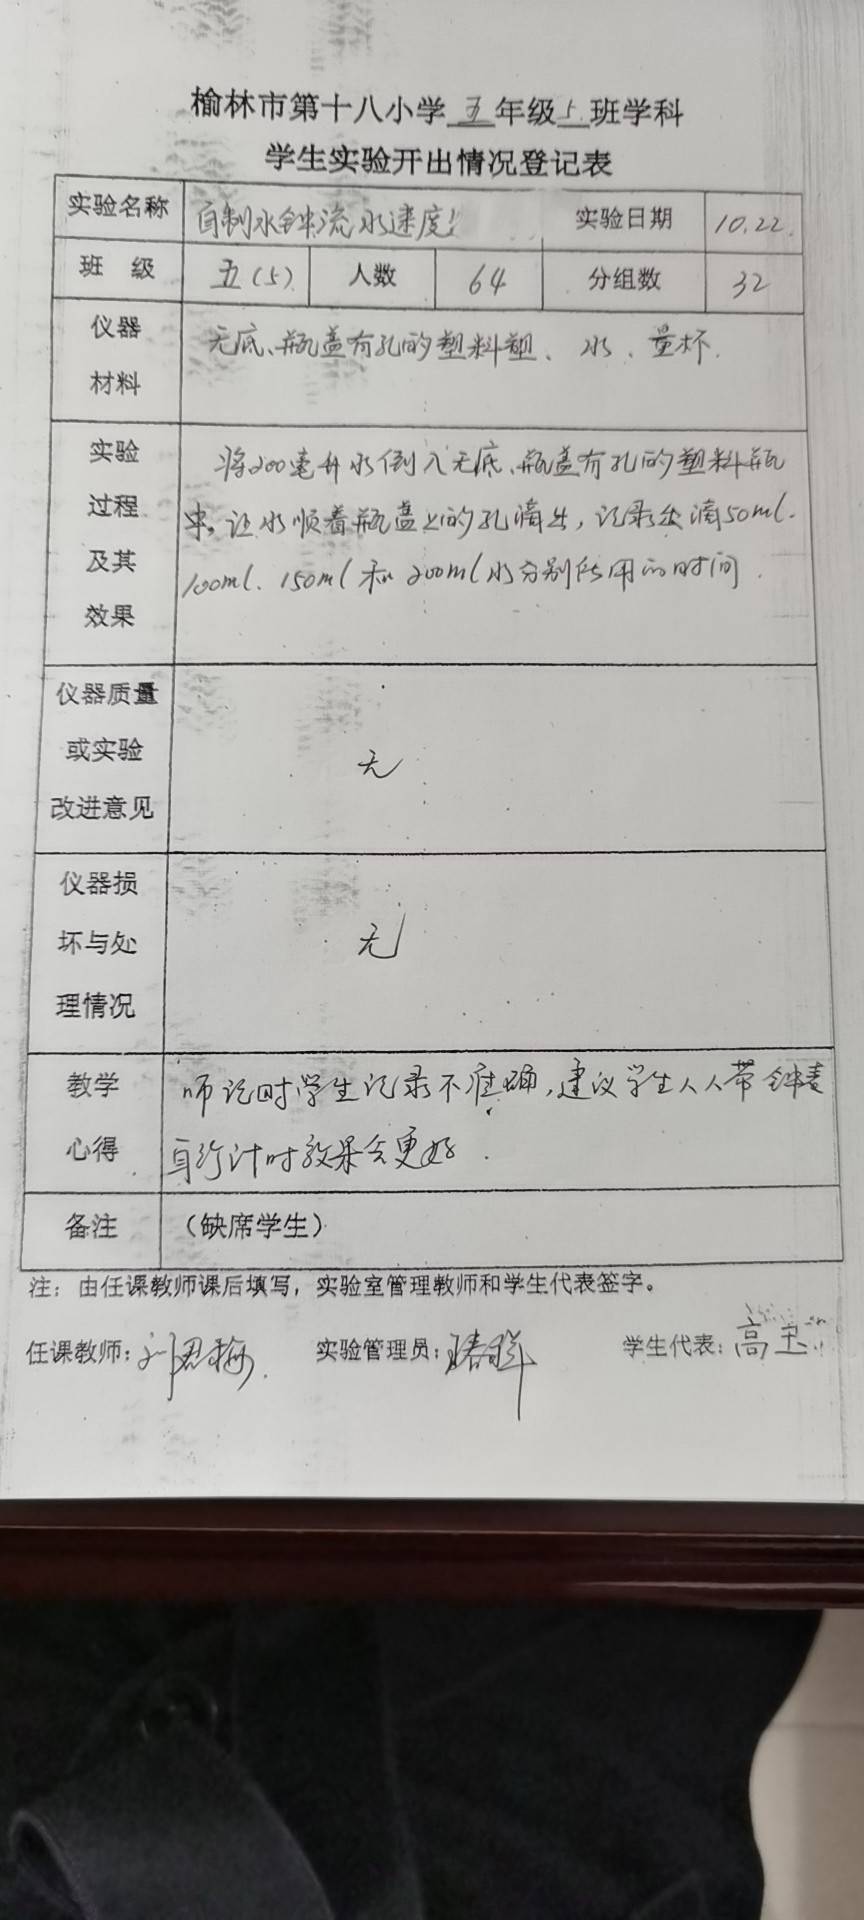 榆林市第十八小学五年级5班学科
学生实验开出情况登记表
实验名称 自制水钟流水速度! 实验日期 10.22.
班 级 五(5) 人数 64 分组数 32
仪器
材料
无底、瓶盖有孔的塑料塑、水、量杯.
实验
过程
及其
效果
将200毫升水倒入无底、瓶盖有孔的塑料瓶
中,让水顺着瓶盖上的孔滴出,记录出滴50ml.
100ml.150ml和200ml水分别所用的时间.
仪器质量
或实验
改进意见
无
仪器损
坏与处
理情况
无
教学
心得
师记时学生记录不准确,建议学生人人带钟表
自行计时效果会更好.
备注 (缺席学生)
注:由任课教师课后填写,实验室管理教师和学生代表签字。
任课教师: 实验管理员: 学生代表:高玉